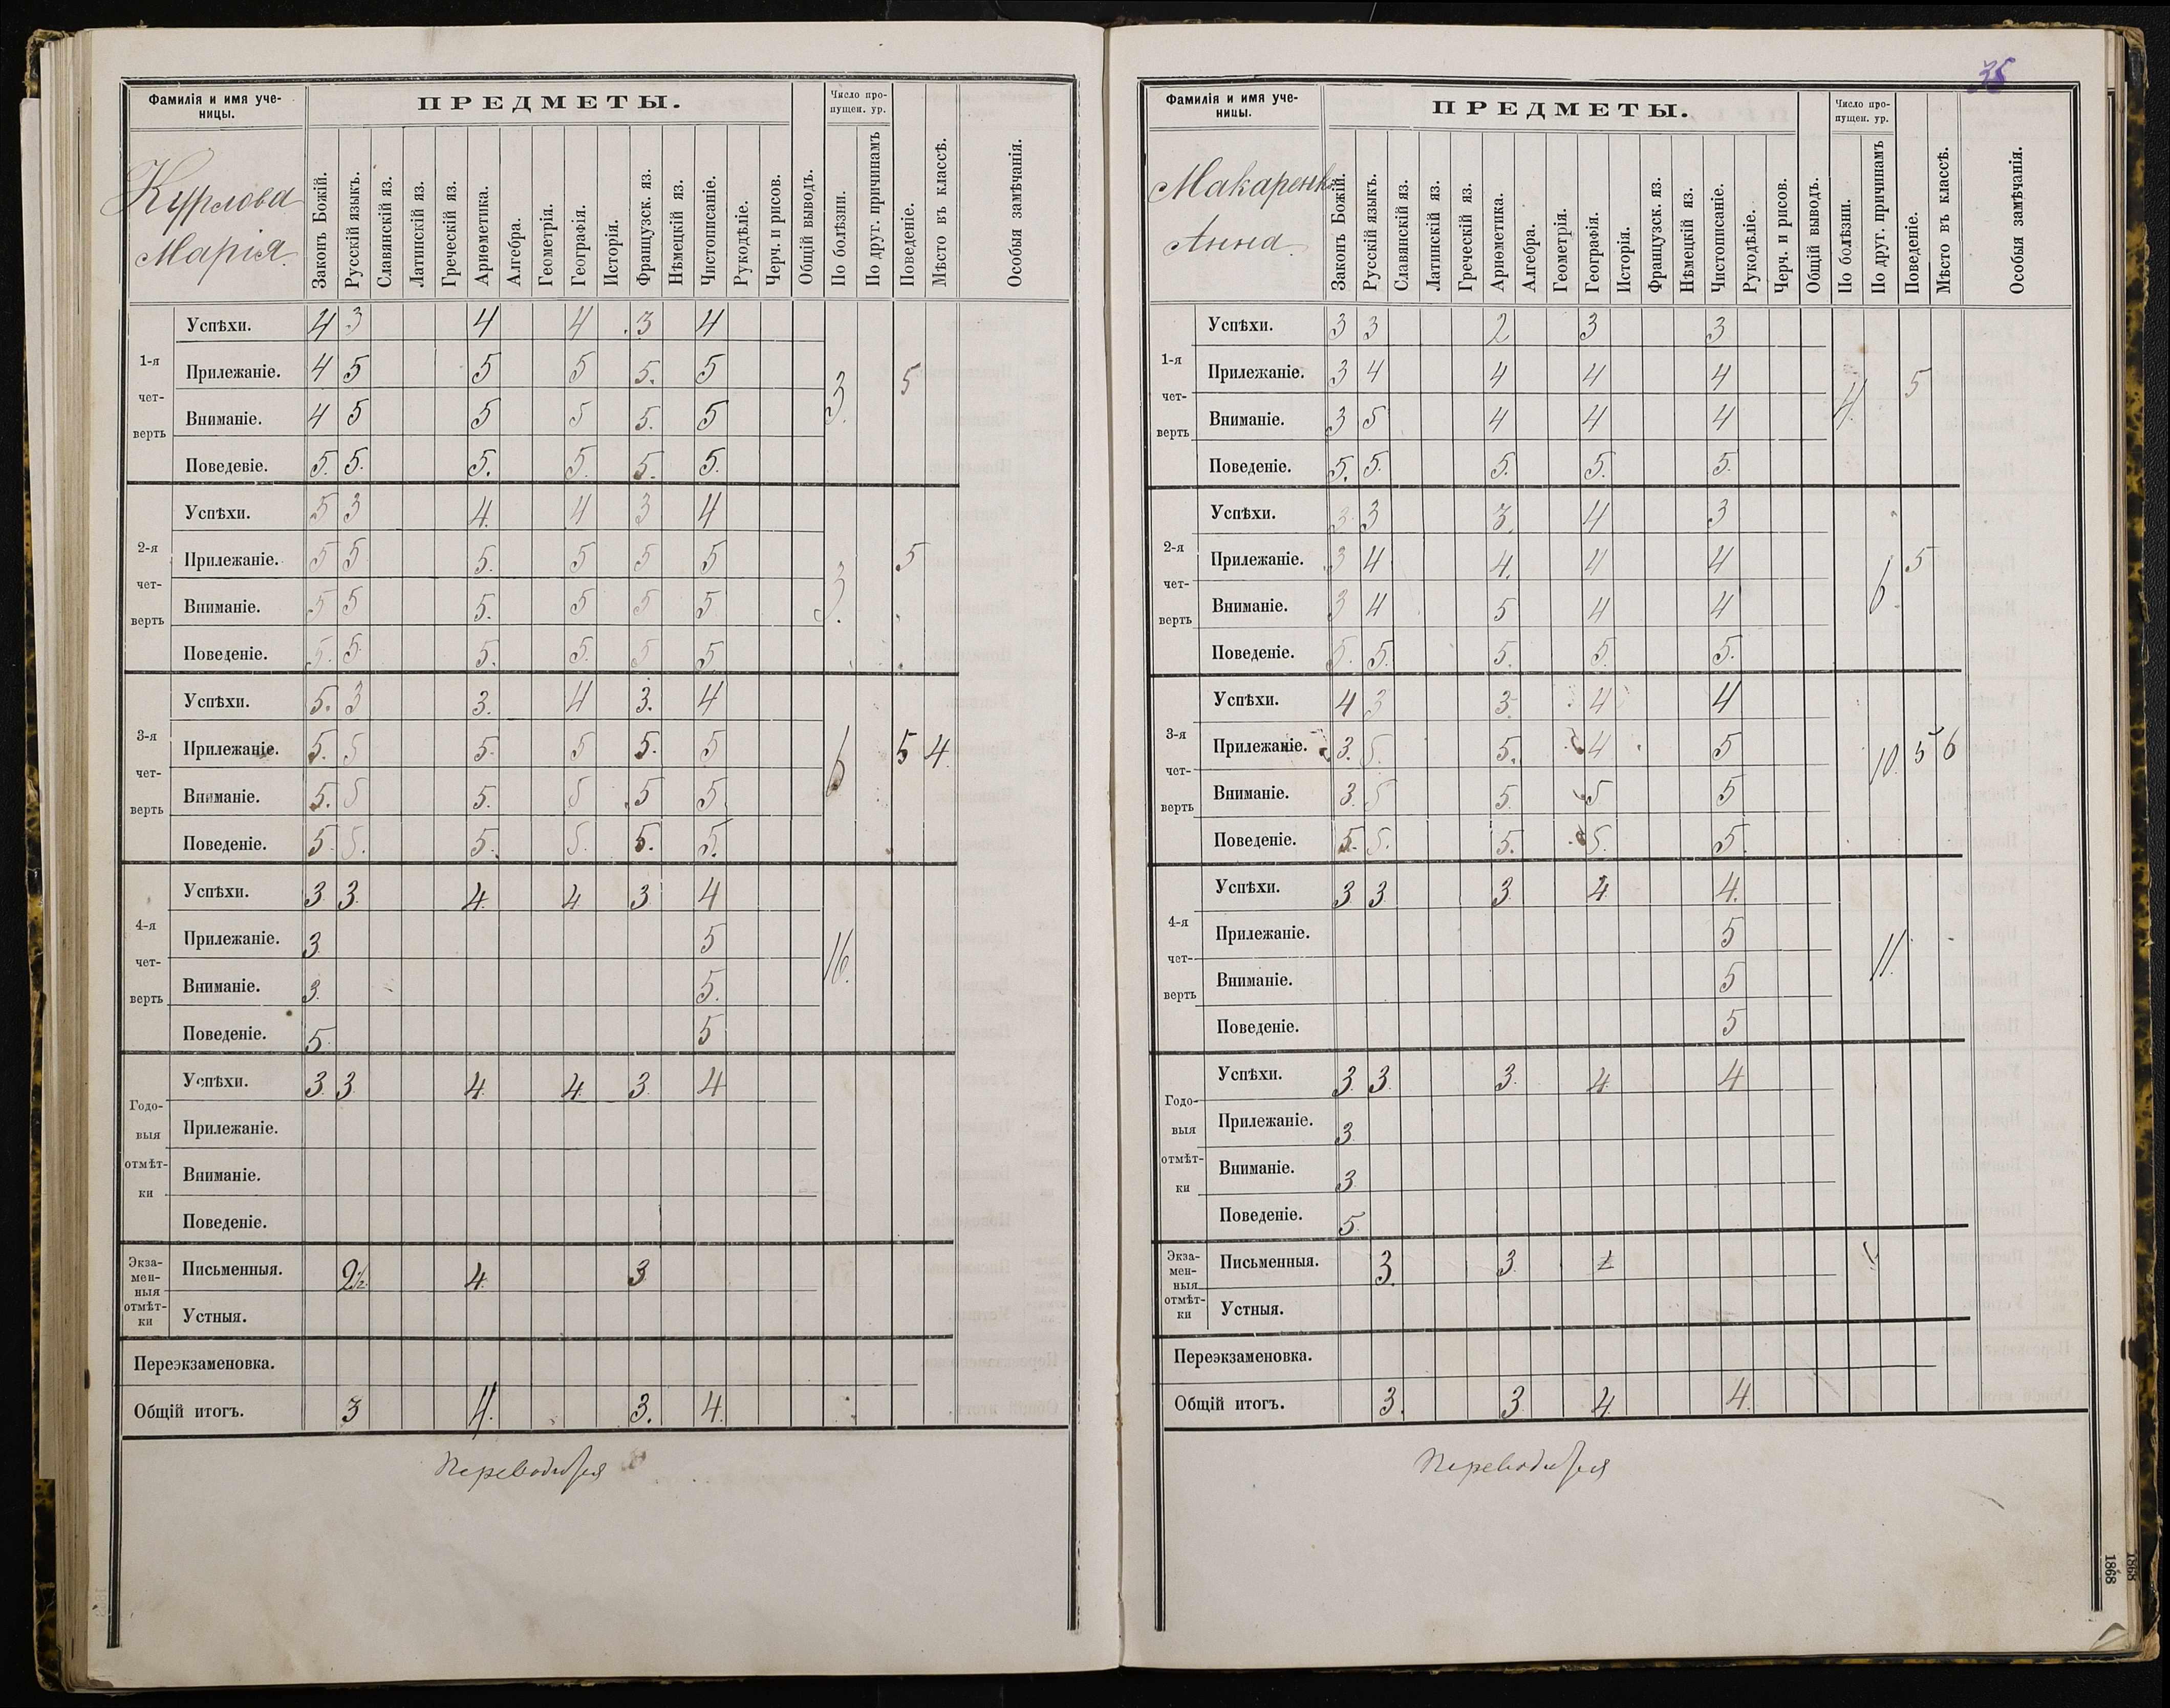 Фамилія и имя уче-
ницы.
ПРЕДМЕТЫ.
Число про-
пущен. ур.
Курлова
Марія.
Законъ Божій.
Русскій языкъ.
Славянскій яз.
Латинскій яз.
Греческій яз.
Ариѳметика.
Алгебра.
Геометрія.
Географія.
Исторія.
Французск. яз.
Нѣмецкій яз.
Чистописаніе.
Рукодѣліе.
Черч. и рисов.
Общій выводъ.
По болѣзни.
По друг. причинамъ
Поведеніе.
Мѣсто въ классѣ.
Особыя замѣчанія.
1-я чет-верть
Успѣхи. 4 3 4 4 3 4
Прилежаніе. 4 5 5 5 5. 5 3. 5
Вниманіе. 4 5 5 5 5. 5
Поведевіе. 5. 5. 5. 5. 5. 5.
2-я чет-верть
Успѣхи. 5 3 4. 4 3 4
Прилежаніе. 5 5 5. 5 5 5 3. 5
Вниманіе. 5 5 5. 5 5 5
Поведеніе. 5. 5. 5. 5. 5 5
3-я чет-верть
Успѣхи. 5. 3 3. 4 3. 4
Прилежаніе. 5. 5 5. 5 5. 5 6 5 4.
Вниманіе. 5. 5 5. 5 5 5
Поведеніе. 5. 5. 5. 5. 5. 5.
4-я чет-верть
Успѣхи. 3 3. 4. 4. 3 4
Прилежаніе. 3. 5 16.
Вниманіе. 3. 5.
Поведеніе. 5. 5
Годо-выя отмѣт-ки
Успѣхи. 3. 3. 4. 4. 3. 4
Прилежаніе.
Вниманіе.
Поведеніе.
Экза-мен-ныя отмѣт-ки
Письменныя. 2½. 4. 3
Устныя.
Переэкзаменовка.
Общій итогъ. 3 4. 3. 4.
Переводится
35
Фамилія и имя уче-
ницы.
ПРЕДМЕТЫ.
Число про-
пущен. ур.
Макаренко
Анна.
Законъ Божій.
Русскій языкъ.
Славянскій яз.
Латинскій яз.
Греческій яз.
Ариѳметика.
Алгебра.
Геометрія.
Географія.
Исторія.
Французск. яз.
Нѣмецкій яз.
Чистописаніе.
Рукодѣліе.
Черч. и рисов.
Общій выводъ.
По болѣзни.
По друг. причинамъ
Поведеніе.
Мѣсто въ классѣ.
Особыя замѣчанія.
1-я чет-верть
Успѣхи. 3 3 2 3 3
Прилежаніе. 3 4 4 4 4 4. 5
Вниманіе. 3 5 4 4 4
Поведеніе. 5. 5. 5. 5. 5.
2-я чет-верть
Успѣхи. 3 3 3. 4 3
Прилежаніе. 3 4 4. 4 4 6. 5
Вниманіе. 3 4 5 4 4
Поведеніе. 5. 5. 5. 5. 5.
3-я чет-верть
Успѣхи. 4 3 3. 4 4
Прилежаніе. 3. 5. 5. 4 5 10. 5 6
Вниманіе. 3. 5 5. 5 5
Поведеніе. 5. 5. 5. 5. 5.
4-я чет-верть
Успѣхи. 3 3. 3. 4. 4.
Прилежаніе. 5 11.
Вниманіе. 5
Поведеніе. 5
Годо-выя отмѣт-ки
Успѣхи. 3. 3. 3. 4. 4
Прилежаніе. 3.
Вниманіе. 3.
Поведеніе. 5.
Экза-мен-ныя отмѣт-ки
Письменныя. 3. 3.
Устныя.
Переэкзаменовка.
Общій итогъ. 3. 3 4. 4.
Переводится
1868
1868